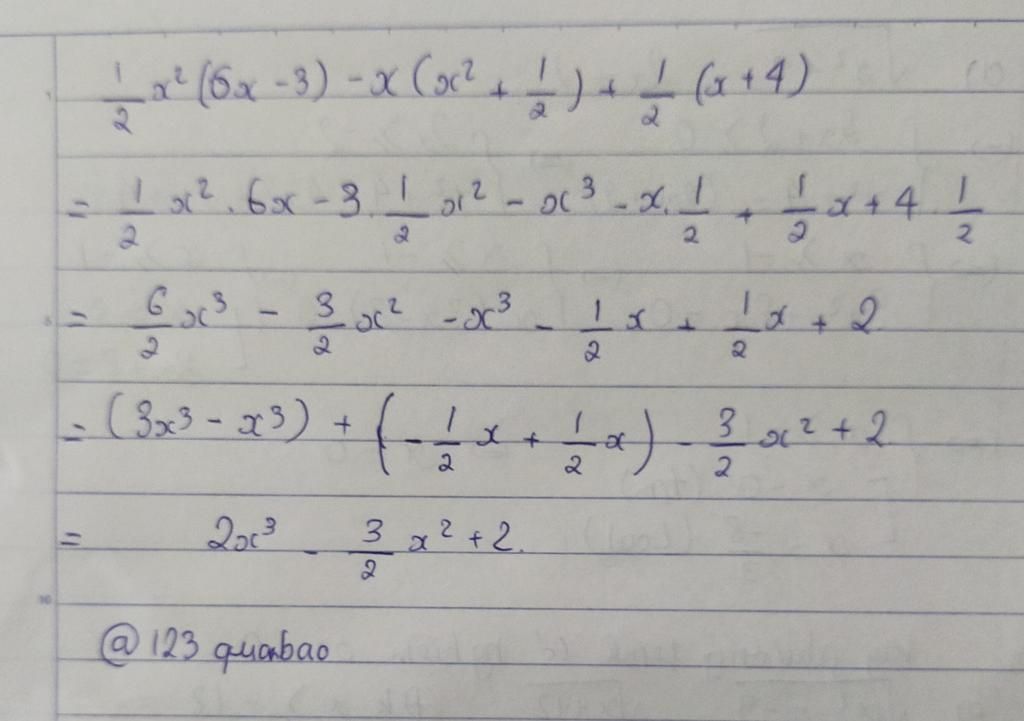 1/2 x² (6x - 3) - x (x² + 1/2) + 1/2 (x + 4)
= 1/2 x² . 6x - 3 . 1/2 x² - x³ - x . 1/2 + 1/2 x + 4 1/2
= 6/2 x³ - 3/2 x² - x³ - 1/2 x + 1/2 x + 2
= (3x³ - x³) + (- 1/2 x + 1/2 x) - 3/2 x² + 2
= 2x³ - 3/2 x² + 2.
@ 123 quanbao